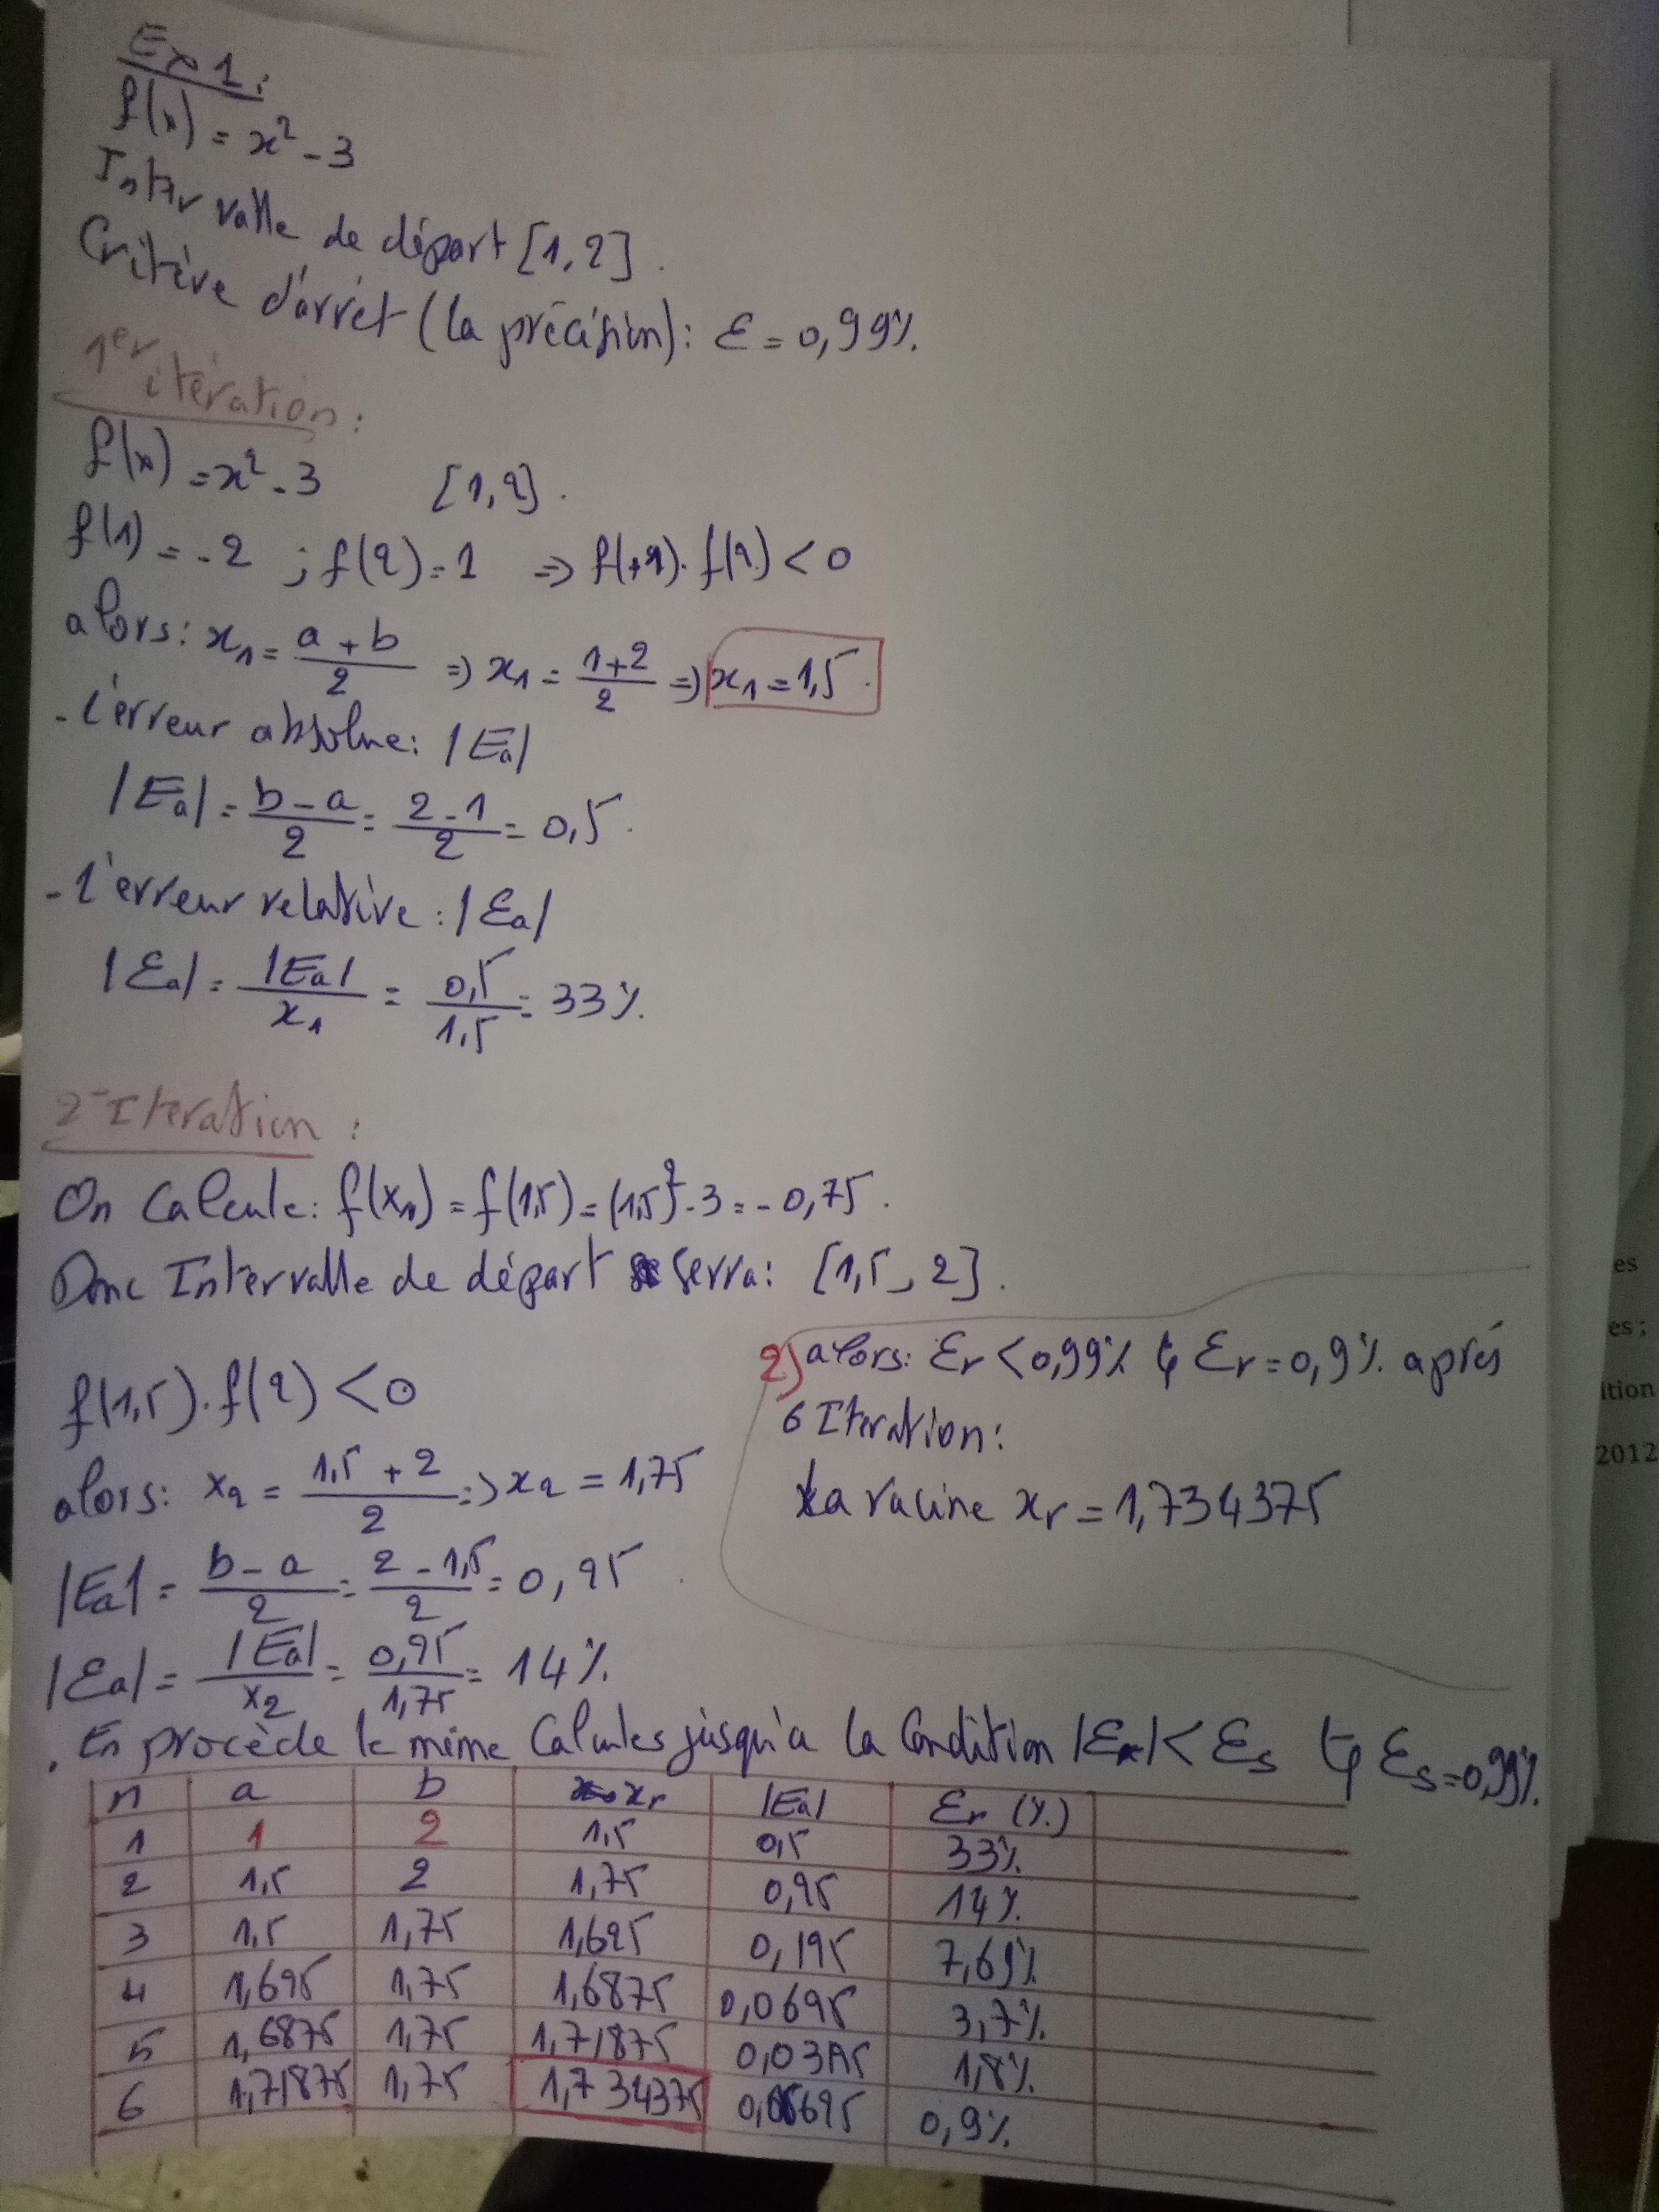 Ex 1:
f(x) = x² - 3
Intervalle de départ [1,2].
Critère d'arrêt (la précision): ε = 0,99%.
1er itération:
f(x) = x² - 3 [1,2].
f(1) = -2 ; f(2) = 1 ⇒ f(1). f(2) < 0
alors: x₁ = (a + b)/2 ⇒ x₁ = (1+2)/2 ⇒ x₁ = 1,5.
- l'erreur absolue: |Ea|
|Ea| = (b - a)/2 = (2 - 1)/2 = 0,5.
- l'erreur relative: |εa|
|εa| = |Ea|/x₁ = 0,5/1,5 = 33%.
2- Iteration:
On Calcule: f(x₁) = f(1,5) = (1,5)² - 3 = - 0,75.
Donc Intervalle de départ serra: [1,5, 2].
f(1,5). f(2) < 0
alors: x₂ = (1,5 + 2)/2 ⇒ x₂ = 1,75
|Ea| = (b - a)/2 = (2 - 1,5)/2 = 0,25.
|εa| = |Ea|/x₂ = 0,25/1,75 = 14%.
2) alors: εr < 0,99% tq εr = 0,9%. après
6 Iteration:
La racine xr = 1,734375
. En procède le même Calcules jusqu'a la Condition |εa| < εs tq εs = 0,99%.
n a b xr |Ea| εr (%)
1 1 2 1,5 0,5 33%
2 1,5 2 1,75 0,25 14%
3 1,5 1,75 1,625 0,125 7,69%
4 1,625 1,75 1,6875 0,0625 3,7%
5 1,6875 1,75 1,71875 1,8%
6 1,71875 1,75 1,734375 0,9%
es
es;
ition
2012